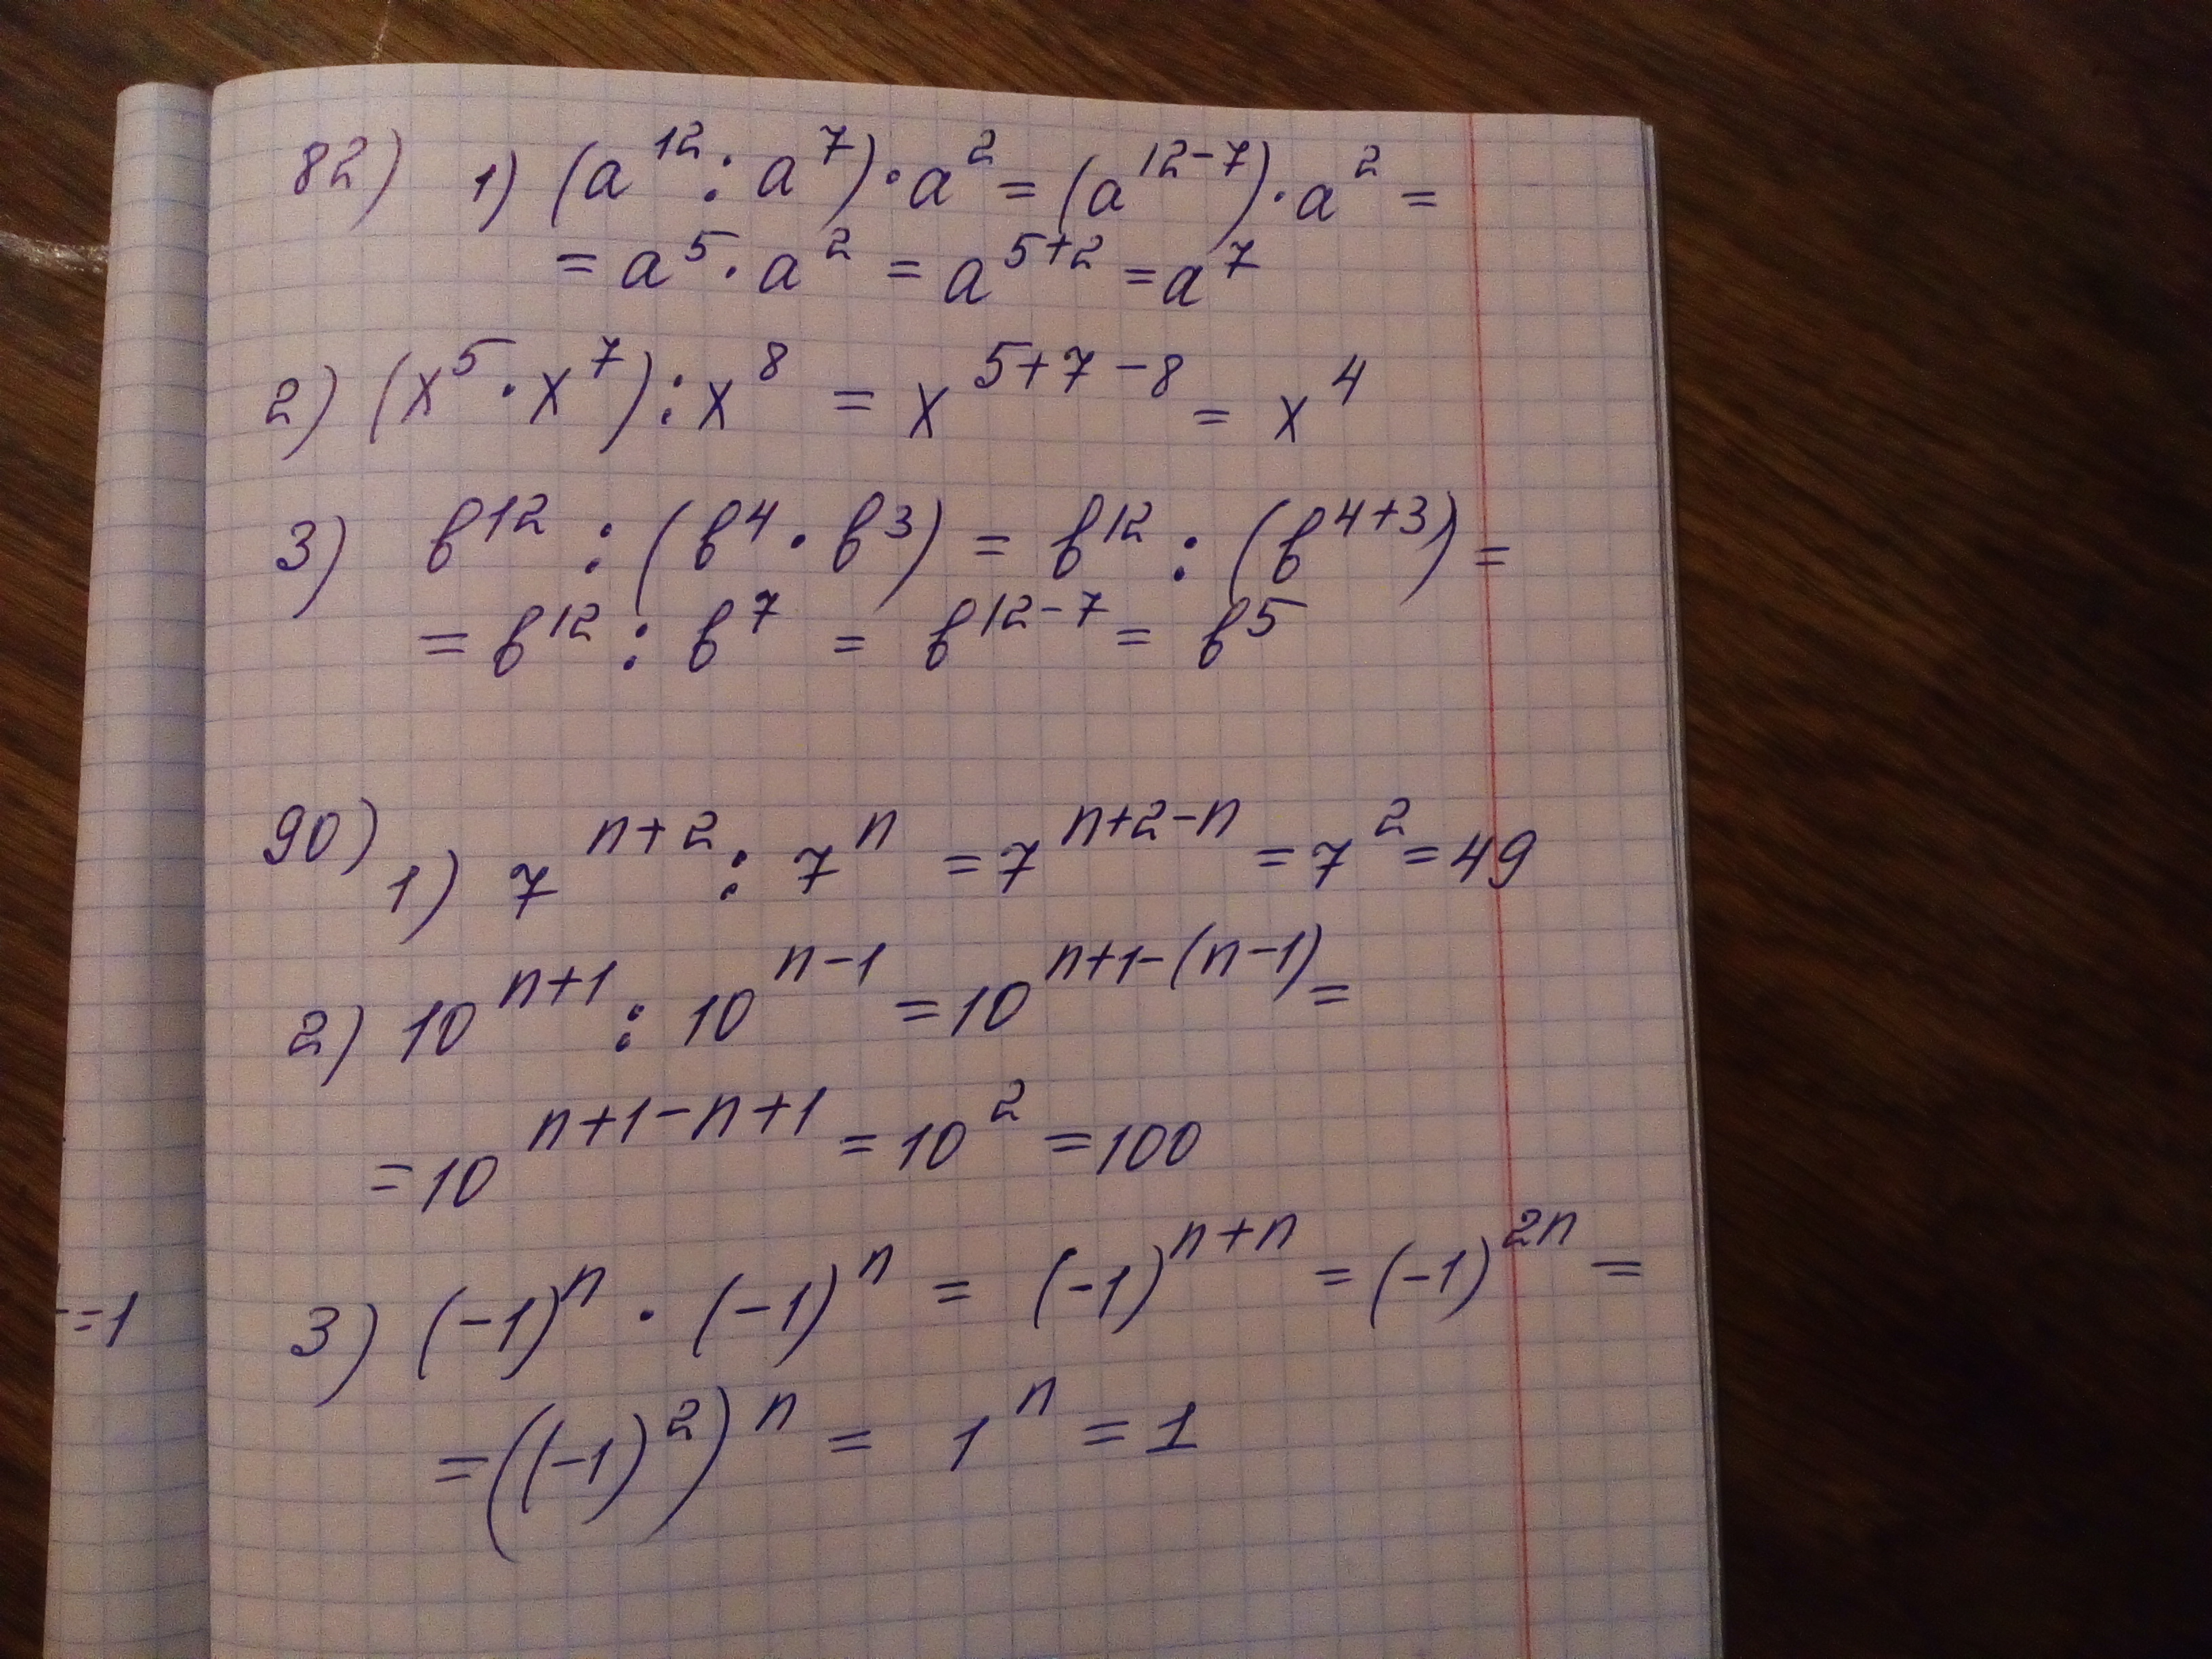 82) 1) (a¹² : a⁷) · a² = (a¹²⁻⁷) · a² =
= a⁵ · a² = a⁵⁺² = a⁷
2) (x⁵ · x⁷) : x⁸ = x⁵⁺⁷⁻⁸ = x⁴
3) в¹² : (в⁴ · в³) = в¹² : (в⁴⁺³) =
= в¹² : в⁷ = в¹²⁻⁷ = в⁵
90) 1) 7ⁿ⁺² : 7ⁿ = 7ⁿ⁺²⁻ⁿ = 7² = 49
2) 10ⁿ⁺¹ : 10ⁿ⁻¹ = 10ⁿ⁺¹⁻⁽ⁿ⁻¹⁾ =
= 10ⁿ⁺¹⁻ⁿ⁺¹ = 10² = 100
3) (-1)ⁿ · (-1)ⁿ = (-1)ⁿ⁺ⁿ = (-1)²ⁿ =
= ((-1)²)ⁿ = 1ⁿ = 1
=1